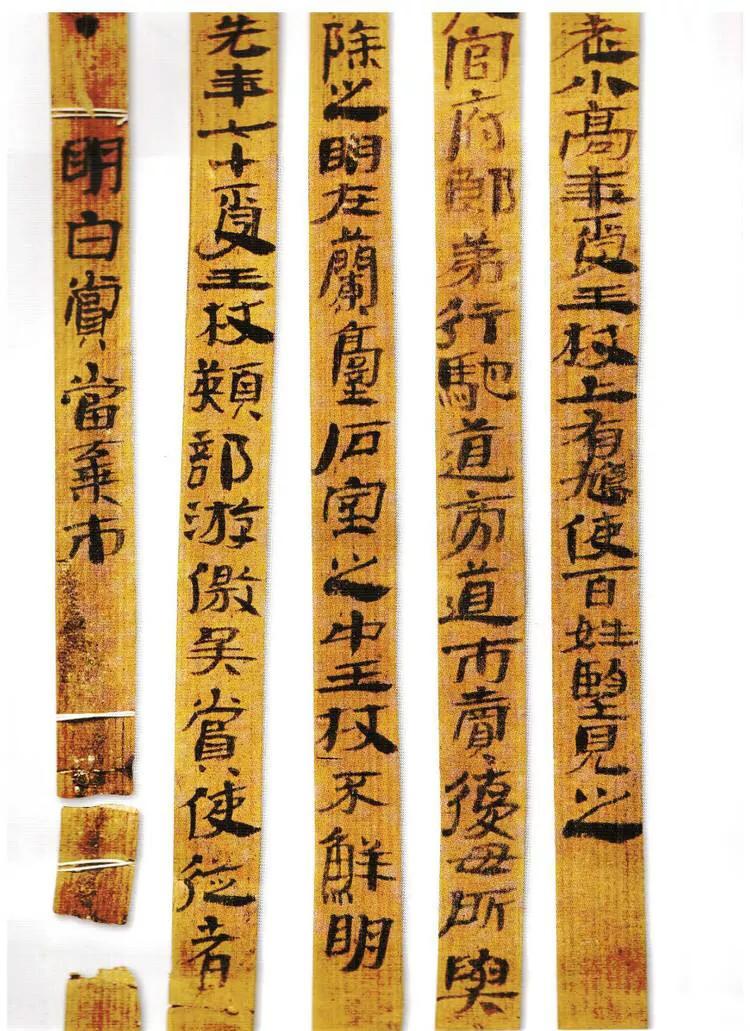 老小高年受王杖上有鳩使百姓望見之
官府郎第行馳道旁道市賣復毋所與
除之明在蘭臺石室之中王杖不鮮明
先年七十受王杖熲部游徼吳賞使從者
明白賞當棄市